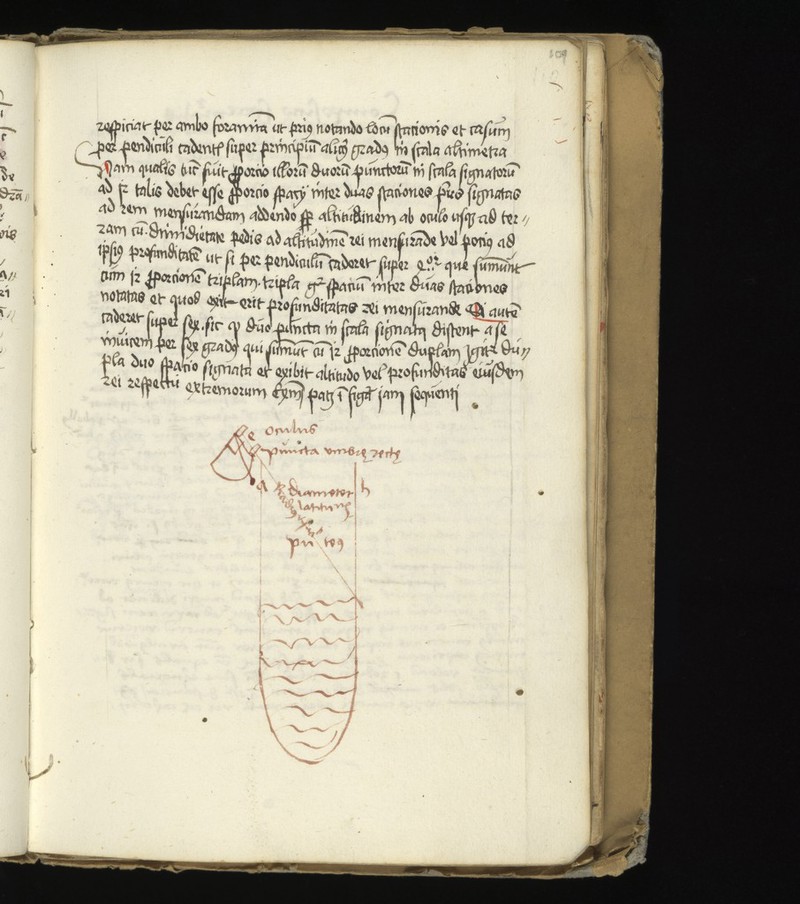 109
respiciat per ambo foramina ut prius notando locū stacionis et casum
per pendiculi cadentꝭ super principiū alicꝰ gradꝰ in scala altimetra
Nam qualis tūc fuit ꝓporcio illorū duorū punctorū in scala signatorū
ad talis debet esse ꝓporcio spacij inter duas staciones priꝰ signatas
ad rem mensurandam addendo altitudinem ab oculo usqꝫ ad ter〃
ram cū dimidietate pedis ad altitudinē rei mensurāde vel pociꝰ ad
ipsiꝰ profunditatē ut si per pendiculū caderet super que sumunt
cum ꝓporcionē triplam tripla spaciū inter duas staciones
notatas et quod exit erit profunditatas rei mensurande Si autē
caderet super sex sic ꝙ duo puncta in scala signata distent a se
invicem per sex gradꝰ qui sumūt cū ꝓporcionē duplam Igitur du〃
pla duo spacio signata et exibit altitudo vel profunditas eiusdem
rei respectu extremorum patꝫ ī figura iam sequenti
e oculus
puncta umbrę rectę
a diameter b
latitudīs
puteꝰ